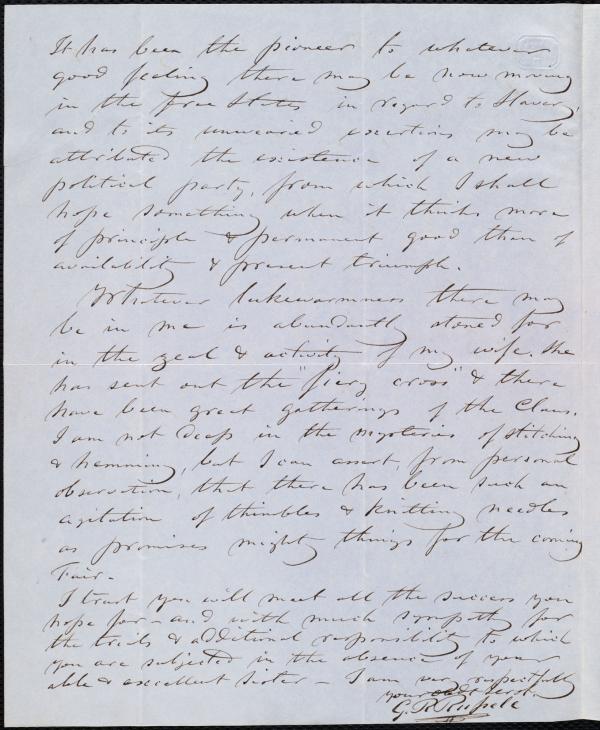 It has been the pioneer to whatever
good feeling there may be now moving
in the free States in regard to Slavery,
and to its unwearied exertions may be
attributed the existence of a new
political party, from which I shall
hope something when it thinks more
of principle & permanent good than of
availability & present triumph.
Whatever lukewarmness there may
be in me is abundantly atoned for
in the zeal & activity of my wife. She
has sent out the "fiery cross" & there
have been great gatherings of the Clans.
I am not deep in the mysteries of stitching
& hemming, but I can assert, from personal
observation, that there has been such an
agitation of thimbles & knitting needles
as promises mighty things for the coming
Fair.
I trust you will meet all the success you
hope for - and with much sympathy for
the trials & additional responsibility to which
you are subjected in the absence of your
able & excellent sister - I am very respectfully
your obdt servt.
G. R. Russell